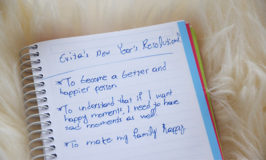 Evita's New Year's Resolution!
*To become a better and
happier person
*To understand that if I want
happy moments, I need to have
sad moments as well.
*To make my family happy